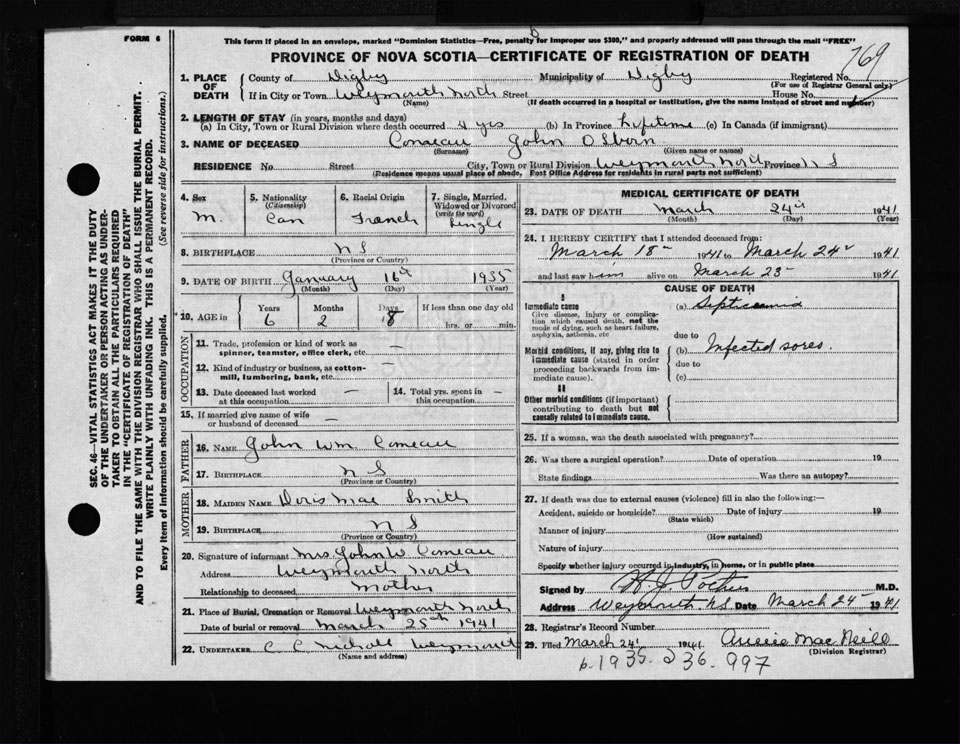 FORM 6
This form if placed in an envelope, marked "Dominion Statistics—Free, penalty for improper use $300," and properly addressed will pass through the mail "FREE"
PROVINCE OF NOVA SCOTIA—CERTIFICATE OF REGISTRATION OF DEATH
769
1. PLACE OF DEATH County of Digby Municipality of Digby Registered No.
(For use of Registrar General only)
If in City or Town Weymouth North Street House No.
(Name) (If death occurred in a hospital or institution, give the name instead of street and number)
2. LENGTH OF STAY (in years, months and days)
(a) In City, Town or Rural Division where death occurred 4 yrs (b) In Province Lifetime (c) In Canada (if immigrant)
3. NAME OF DECEASED Comeau John Osborn
(Surname) (Given name or names)
RESIDENCE No Street City, Town or Rural Division Weymouth North Province N S
(Residence means usual place of abode. Post Office Address for residents in rural parts not sufficient)
4. Sex 5. Nationality (Citizenship) 6. Racial Origin 7. Single, Married, Widowed or Divorced (write the word)
M. Can French Single
8. BIRTHPLACE N S
(Province or Country)
9. DATE OF BIRTH January 16th 1935
(Month) (Day) (Year)
10. AGE in Years Months Days If less than one day old
6 2 8 hrs. or min.
OCCUPATION
11. Trade, profession or kind of work as spinner, teamster, office clerk, etc. —
12. Kind of industry or business, as cotton-mill, lumbering, bank, etc. —
13. Date deceased last worked at this occupation — 14. Total yrs. spent in this occupation —
15. If married give name of wife or husband of deceased —
FATHER
16. NAME John Wm Comeau
17. BIRTHPLACE N S
(Province or Country)
MOTHER
18. MAIDEN NAME Doris Mae Smith
19. BIRTHPLACE N S
(Province or Country)
20. Signature of informant Mrs. John W. Comeau
Address Weymouth North
Relationship to deceased Mother
21. Place of Burial, Cremation or Removal Weymouth North
Date of burial or removal March 25th 1941
22. UNDERTAKER C C Nichols Weymouth
(Name and address)
MEDICAL CERTIFICATE OF DEATH
23. DATE OF DEATH March 24th 1941
(Month) (Day) (Year)
24. I HEREBY CERTIFY that I attended deceased from:
March 18 1941 to March 24 1941
and last saw him alive on March 23 1941
CAUSE OF DEATH
I
Immediate cause
Give disease, injury or complication which caused death, not the mode of dying, such as heart failure, asphyxia, asthenia, etc
(a) Septicaemia
due to
Morbid conditions, if any, giving rise to immediate cause (stated in order proceeding backwards from immediate cause).
(b) Infected sores.
due to
(c)
II
Other morbid conditions (if important) contributing to death but not causally related to immediate cause.
25. If a woman, was the death associated with pregnancy?
26. Was there a surgical operation? Date of operation 19
State findings Was there an autopsy?
27. If death was due to external causes (violence) fill in also the following:—
Accident, suicide or homicide? Date of injury 19
(State which)
Manner of injury
(How sustained)
Nature of injury
Specify whether injury occurred in industry, in home, or in public place
Signed by M.D.
Address Weymouth N.S. Date March 24 1941
28. Registrar's Record Number
29. Filed March 24 1941 Annie MacNeill
(Division Registrar)
b. 1935. 236. 997
SEC. 46—VITAL STATISTICS ACT MAKES IT THE DUTY
OF THE UNDERTAKER OR PERSON ACTING AS UNDER-
TAKER TO OBTAIN ALL THE PARTICULARS REQUIRED
IN THE "CERTIFICATE OF REGISTRATION OF DEATH"
AND TO FILE THE SAME WITH THE DIVISION REGISTRAR WHO SHALL ISSUE THE BURIAL PERMIT.
WRITE PLAINLY WITH UNFADING INK. THIS IS A PERMANENT RECORD.
Every item of information should be carefully supplied. (See reverse side for instructions.)